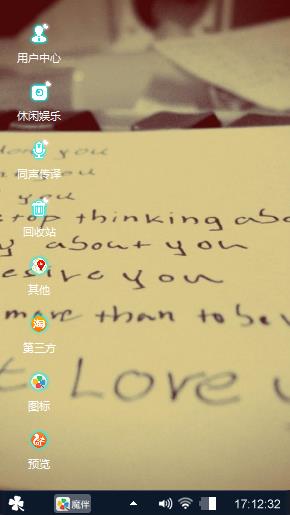 用户中心
休闲娱乐
you
同声传译
you
you
stop thinking abo
回收站
about you
desire you
其他
more than to be
第三方
Love
图标
预览
魔伴
17:12:32